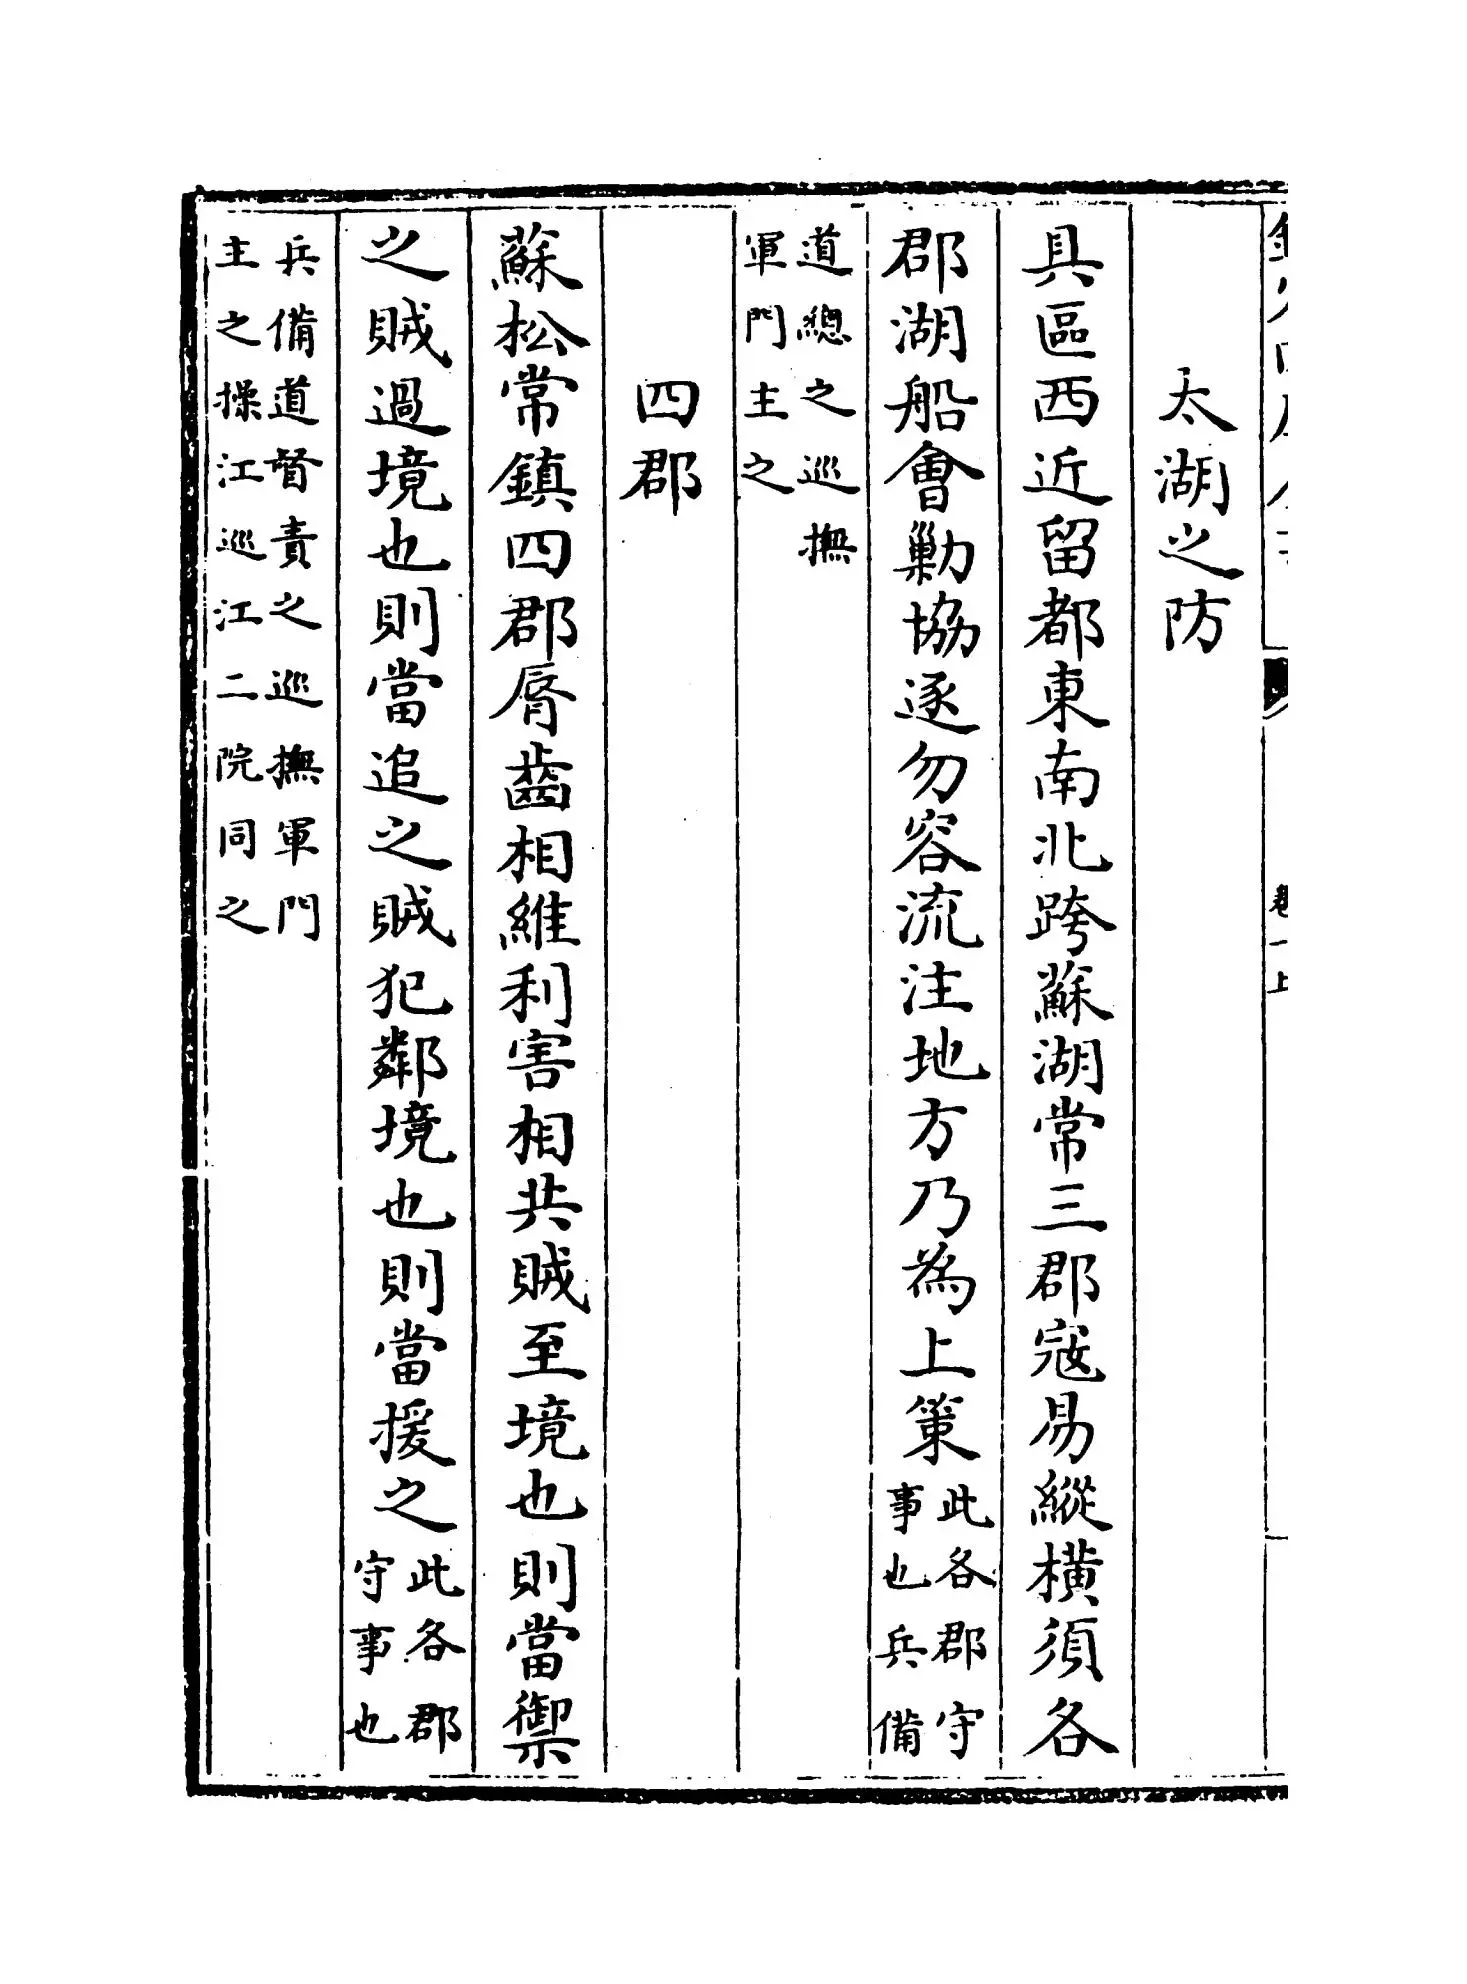 太湖之防
具區西近留都東南北跨蘇湖常三郡寇易縱横須各
郡湖船會勦協逐勿容流注地方乃為上策此各郡守
事也兵備
道總之巡撫
軍門主之
四郡
蘇松常鎮四郡脣齒相維利害相共賊至境也則當禦
之賊過境也則當追之賊犯鄰境也則當援之此各郡
守事也
兵備道督責之巡撫軍門
主之操江巡江二院同之
卷一上